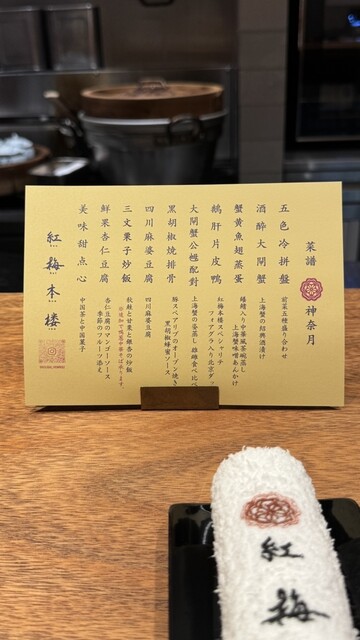 菜譜
神奈月
五色冷拼盤
前菜五種盛り合わせ
酒醉大閘蟹
上海蟹の紹興酒漬け
蟹黄魚翅蒸蛋
鱶鰭入り中華風茶碗蒸し
上海蟹味噌あんかけ
鵝肝片皮鴨
紅梅本樓スペシャリテ
フォアグラ入り北京ダック
大閘蟹公雌配對
上海蟹の姿蒸し 雄雌食べ比べ
黒胡椒焼排骨
豚スペアリブのオーブン焼き
黒胡椒蜂蜜ソース
四川麻婆豆腐
四川麻婆豆腐
三文栗子炒飯
秋鮭と甘栗と銀杏の炒飯
鮮果杏仁豆腐
杏仁豆腐のマンゴーソース
季節のフルーツ添え
美味甜点心
中国茶と中国菓子
紅梅本樓
紅梅